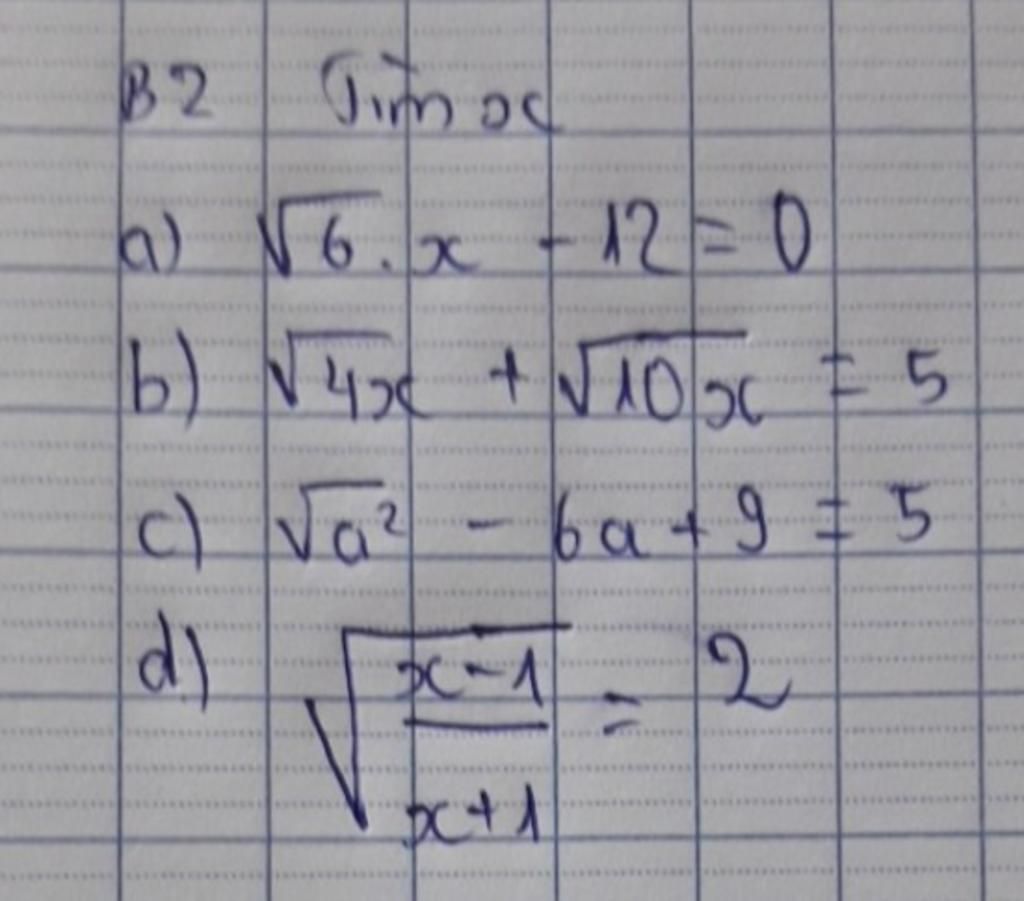 B2 Tìm x
a) √6. x - 12 = 0
b) √4x + √10x = 5
c) √a² - 6a + 9 = 5
d) √((x-1)/(x+1)) = 2